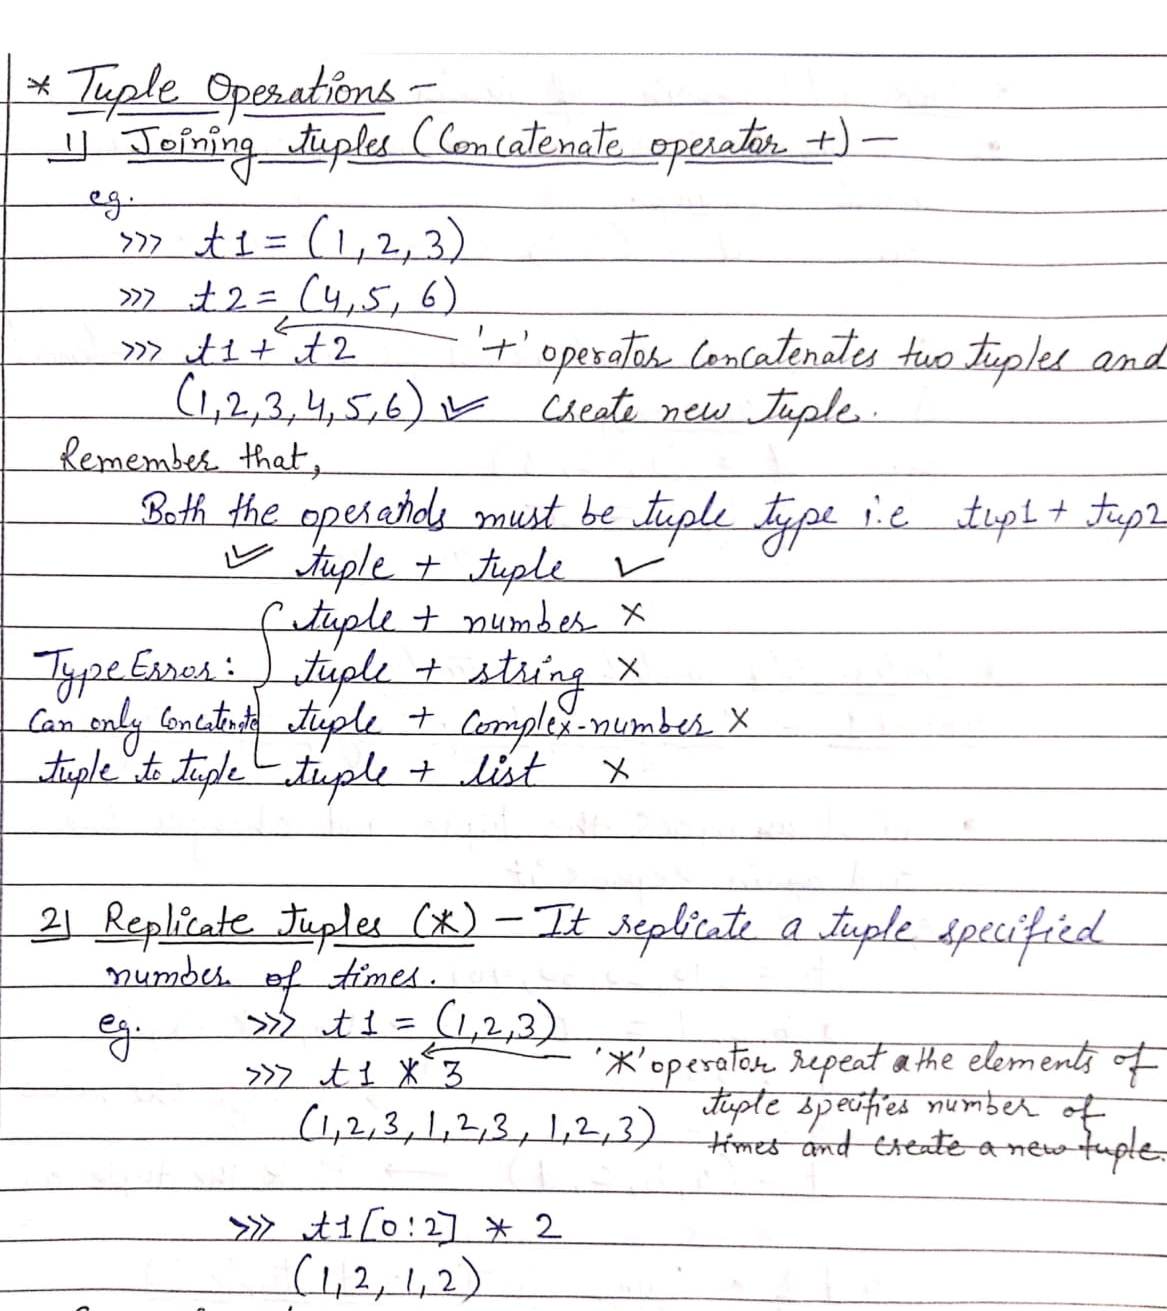 * Tuple Operations -
1) Joining tuples (Concatenate operator +) —
eg.
>>> t1 = (1, 2, 3)
>>> t2 = (4, 5, 6)
>>> t1 + t2 '+' operator Concatenates two tuples and
(1,2,3,4,5,6) ✓ Create new tuple.
Remember that,
Both the operands must be tuple type i.e tup1 + tup2
✓ tuple + tuple ✓
tuple + number ×
Type Error: tuple + string ×
Can only Concatenate tuple + Complex-number ×
tuple to tuple tuple + list ×
2) Replicate Tuples (*) - It replicate a tuple specified
number of times.
eg. >>> t1 = (1,2,3)
>>> t1 * 3 '*' operator repeat the elements of
(1,2,3,1,2,3,1,2,3) tuple specifies number of
times and create a new tuple.
>>> t1[0:2] * 2
(1,2,1,2)